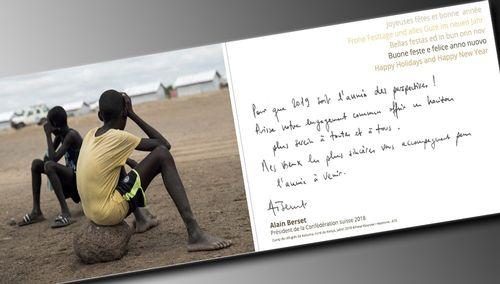 Joyeuses fêtes et bonne année
Frohe Festtage und alles Gute im neuen Jahr
Bellas festas ed in bun onn nov
Buone feste e felice anno nuovo
Happy Holidays and Happy New Year
Pour que 2019 soit l'année des perspectives !
Puisse votre engagement commun offrir un horizon
plus serein à toutes et à tous.
Mes vœux les plus sincères vous accompagnent pour
l'année à venir.
A. Berset
Alain Berset
Président de la Confédération suisse 2018